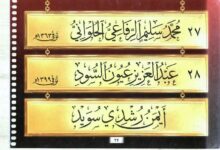 ٢٧ محمد سليم الرفاعي الحلواني ت ١٣٦٣هـ
٢٨ عبد العزيز عيون السود ت ١٣٩٩هـ
أيمن رشدي سويد